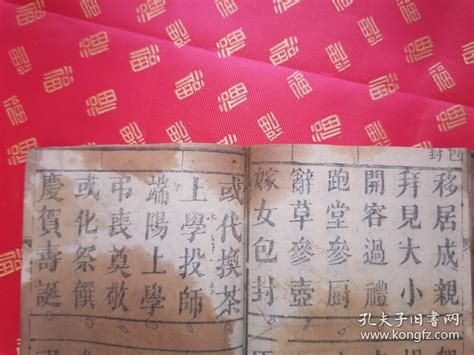 包封
移居成親
拜見大小
開容過禮
跑堂參厨
辭草參壺
嫁女包封
或代換茶
上學投師
端陽上學
弔喪奠敬
或化祭饌
慶賀壽誕
孔夫子旧书网
www.kongfz.com